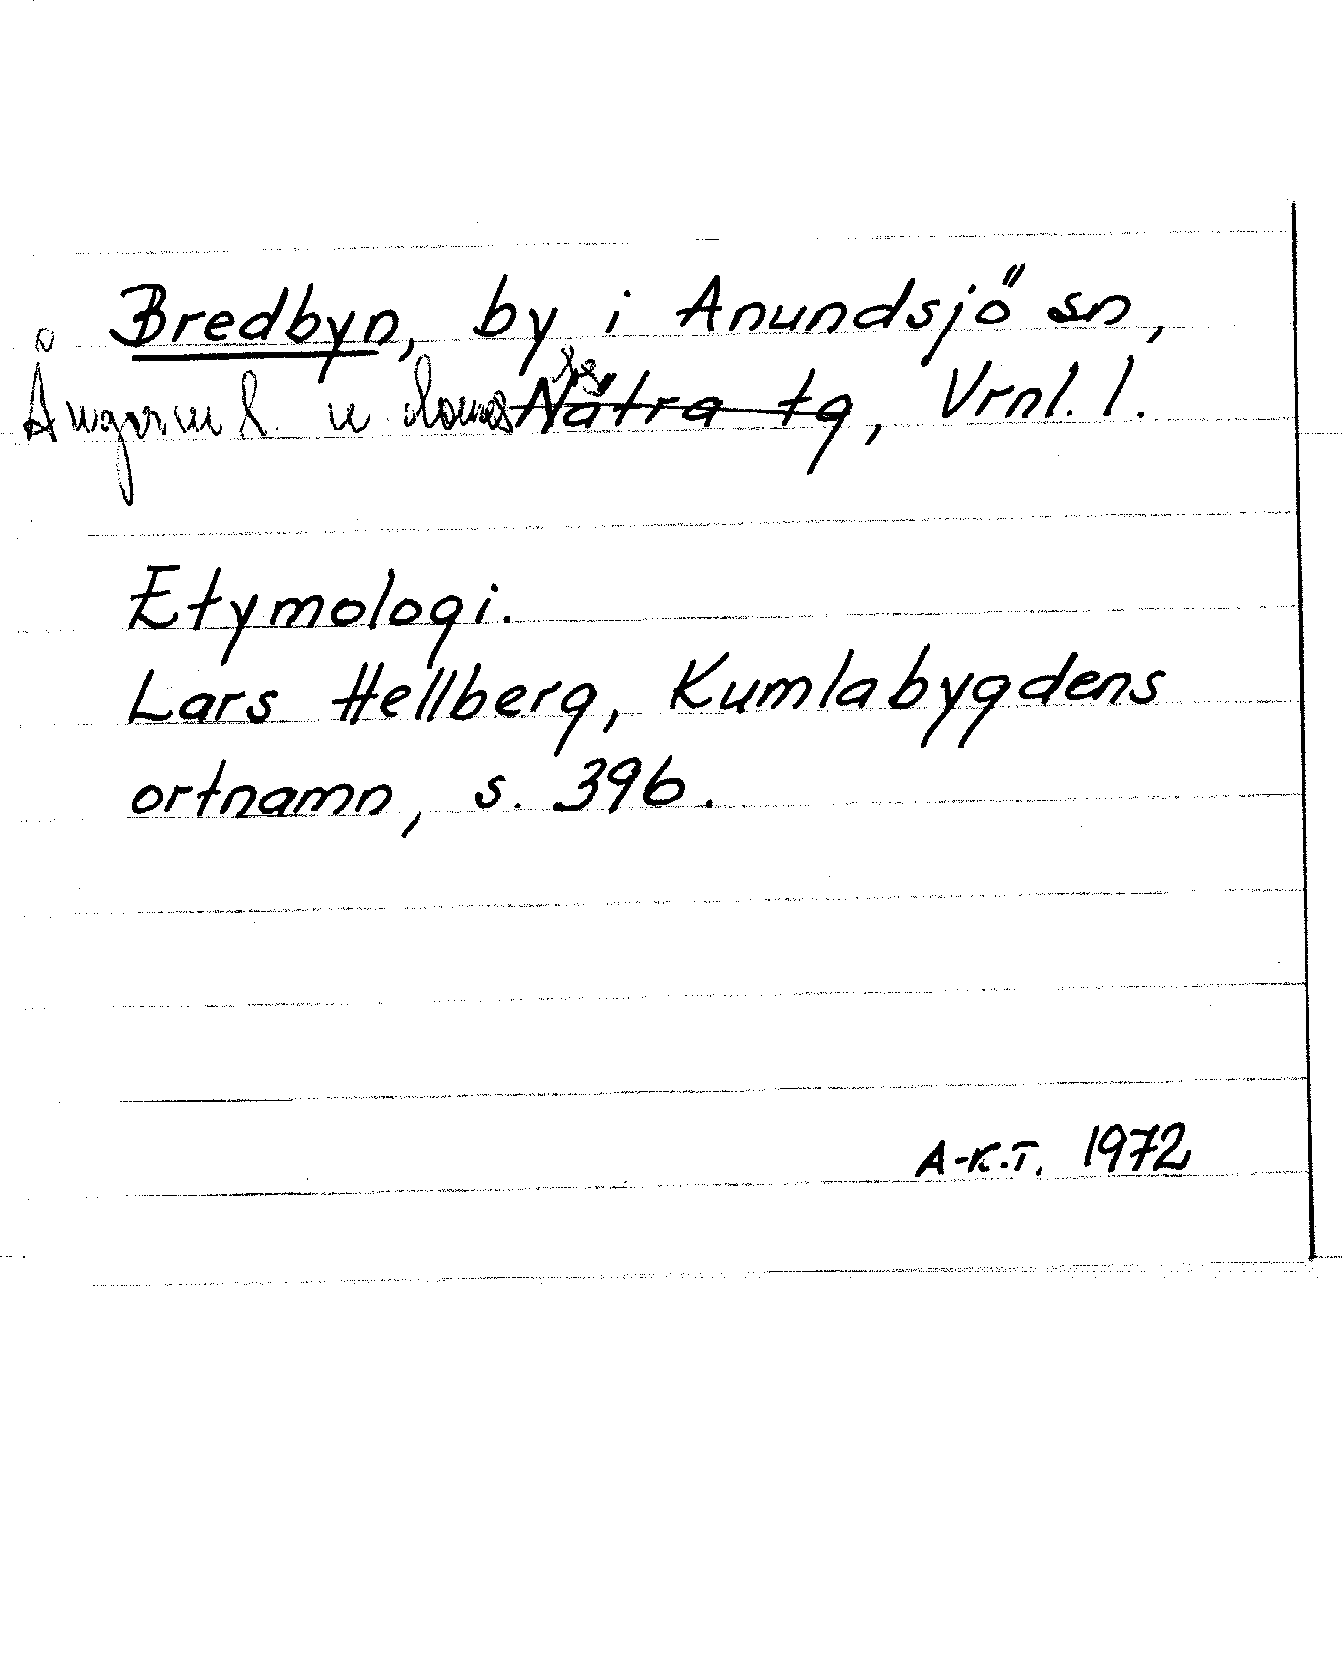 Bredbyn, by i Anundsjö sn,
Ångerml. n doms Nätra tg, Vrnl. l.
Etymologi.
Lars Hellberg, Kumlabygdens
ortnamn, s. 396.
A-K.T. 1972